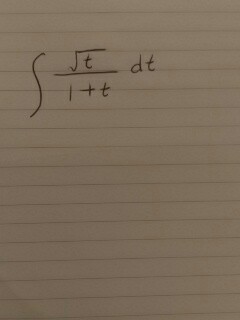 ∫ √t / (1+t) dt